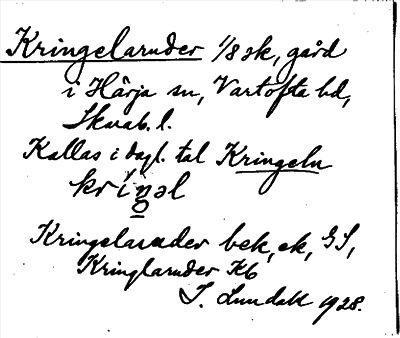 Kringelaruder 1/8 sk, gård
i Hårja sn, Vartofta hd,
Skarab. l.
Kallas i dagl. tal Kringeln
kriŋəl
Kringelaruder bek, ek, GS,
Kringlaruder Kb
S. Lundahl 1928.